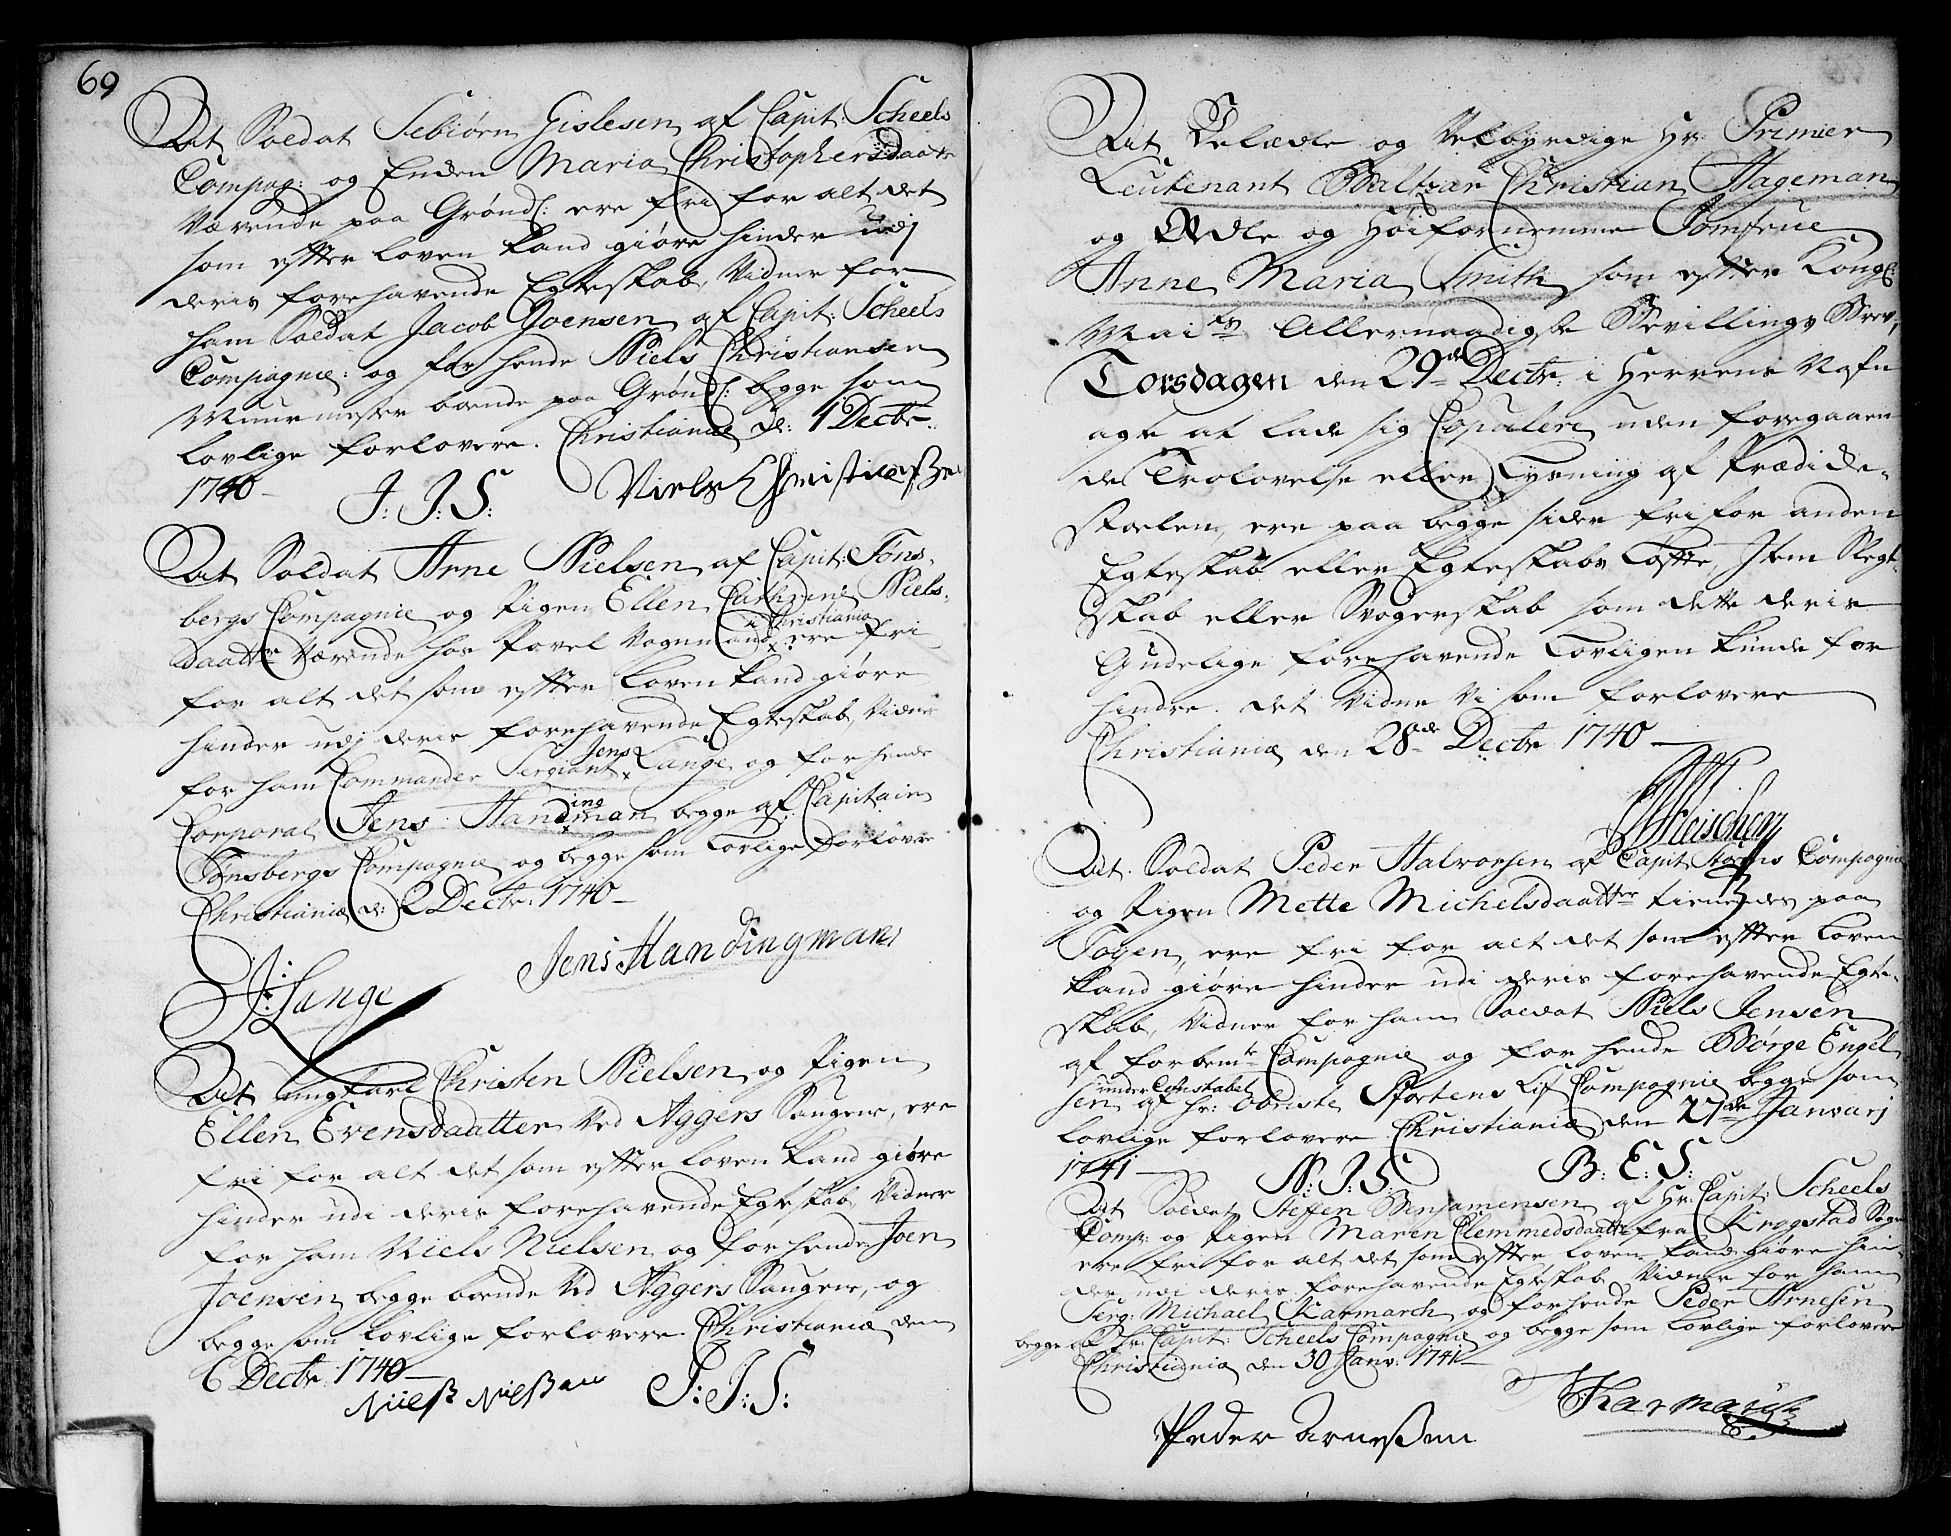 69
At Soldat Sebiørn Gislesen af Capit: Scheels
Compag: og Enken Maria Christophersdaatr
Værende paa Grønd: ere fri for alt det
som effter Loven kand giøre hinder udj
deris forehavende Egteskab, Vidner for
ham Soldat Jacob Joensen af Capit: Scheels
Compagnie: og for hende Niels Christiansen
Muurmester boende paa Grønd: begge som
lovlige forlovere. Christianiæ d: 1 Decbr.
1740
J: J: S: Niels Christiansßen
At Soldat Arne Nielsen af Capit: Töns-
bergs Compagnie og Pigen Ellen Cathrine Niels-
daatter Værende hos Povel Vognmand i Christiania ere fri
for alt det som effter Loven kand giøre
hinder udj deris forehavende Egteskab, Vidner
for ham Commander Sergiant Jens Lange og for hende
Corporal Jens Handingman begge af Capitain
Tønsbergs Compagnie og begge som Lovlige forlovere
Christianiæ d: 2 Decbr. 1740
J: Lange Jens Handingman
At ungkarl Christen Nielsen og Pigen
Ellen Evensdaatter Ved Aggers Saugene, ere
fri for alt det som effter Loven kand giøre
hinder udi deris forehavende Egteskab, Vidner
for ham Niels Nielsen og for hende Joen
Joensen begge boende Ved Aggers Saugene, og
begge som lovlige forlovere. Christianiæ den
6 Decbr. 1740
Nielß Nielßen J: J: S:
At Velædle og Velbyrdige Hr. Primier
Leutenant Baltzar Christian Hageman
og Ædle og Höifornemme Jomfrue
Anne Maria Smith som effter Kongl:
Maits Allernaadigste Bevillings Brev,
Torsdagen den 29de Decbr. i Herrens Nafn
agte at lade sig Copulere uden foregaaen
de Trolovelse eller Lysning af Prædike-
stoelen, ere paa begge sider fri for anden
Egteskab eller Egteskabs Løfte, Item Slegt-
skab eller Svogerskab som dette deris
Gudelige forehavende Lovligen kunde for
hindre. det Vidne Vi som forlovere
Christianiæ den 28de Decbr 1740
Fleischer
At Soldat Peder Halvorsen af Capit Compagnie
og Pigen Mette Michelsdaatter tienendes paa
Toyen, ere fri for alt det som effter Loven
kand giøre hinder udi deris forehavende Egte-
skab, Vidner for ham Soldat Niels Jensen
af forbemte Compagnie og for hende Børge Engel
sen under Constabel af Hr: Obriste Lif Compagnie begge som
lovlige forlovere Christianiæ den 27de Januarj
1741 N: J: S: B: E: S:
At Soldat Stefen Benjamensen af Hr: Capit: Scheels
Comp: og Pigen Maren Clemmedsdaatter fra Krogstad Sogn
ere fri for alt det som effter loven kand giøre hin-
der udi deris forehavende Egteskab Vidner for ham
Serg: Michael Karmarch og for hende Peder Arnesen
begge af Hr: Capit: Scheels Compagnie og begge som Lovlige forlovere
Christianiæ den 30 Janv: 1741
Peder Arneßen Karmarch